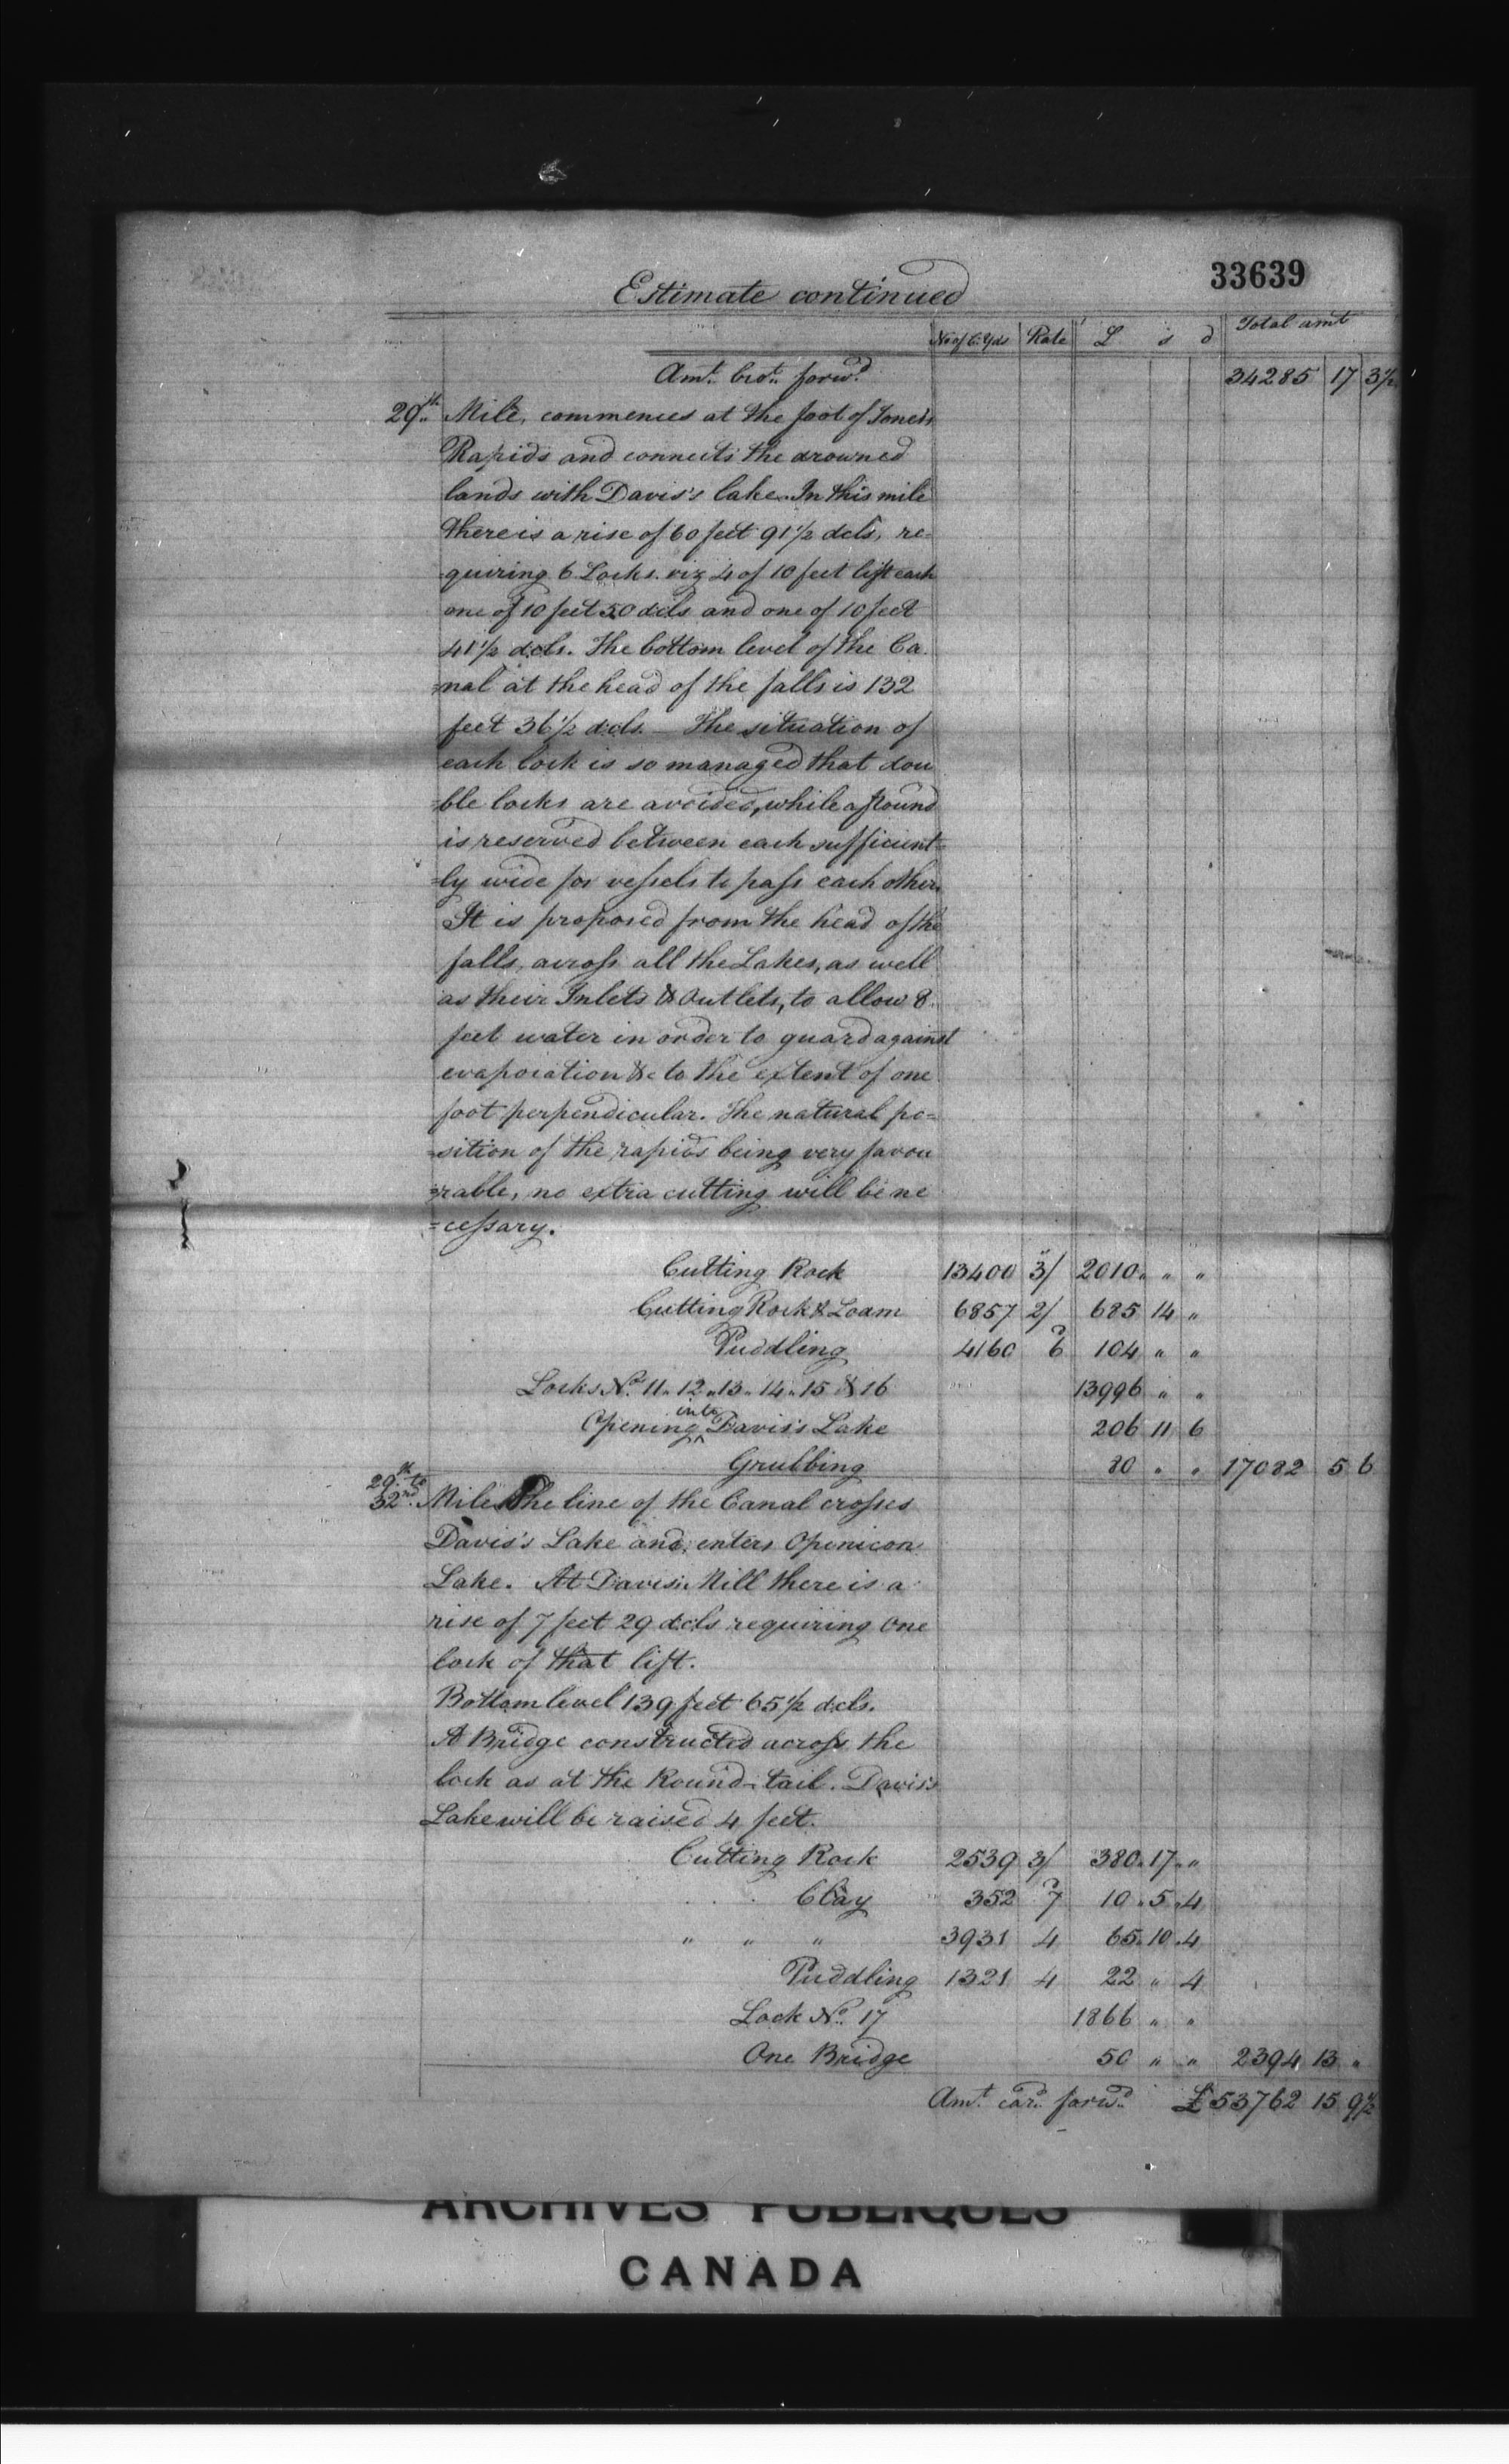 33639
Estimate continued
No of C. Yds Rate £ s d Total amt
Amt. brot. forwd. 34285 17 3½
29th. Mile, commences at the foot of Jones's
Rapids and connects the drowned
lands with Davis's lake. In this mile
there is a rise of 60 feet 91½ dcls, re=
quiring 6 Locks. viz 4 of 10 feet lift each
one of 10 feet 50 dcls and one of 10 feet
41½ dcls. The bottom level of the Ca
=nal at the head of the falls is 132
feet 36½ dcls. — The situation of
each lock is so managed that dou
=ble locks are avoided, while a Pound
is reserved between each sufficient=
=ly wide for vessels to pass each other.
It is proposed from the head of the
falls, across all the Lakes, as well
as their Inlets & Outlets, to allow 8
feet water in order to guard against
evaporation &c to the extent of one
foot perpendicular. The natural po=
=sition of the rapids being very favou
=rable, no extra cutting will be ne
=cessary.
Cutting Rock 13400 3/ 2010 " "
Cutting Rock & Loam 6857 2/ 685 14 "
Puddling 4160 6d 104 " "
Locks No. 11. 12. 13. 14. 15 & 16 13996 " "
Opening into Davis's Lake 206 11 6
Grubbing 80 " " 17082 5 6
29th. to
32nd. Mile The line of the Canal crosses
Davis's Lake and, enters Openicon
Lake. At Davis's Mill there is a
rise of 7 feet 29 dcls requiring One
lock of that lift.
Bottom level 139 feet 65½ dcls.
A Bridge constructed across the
lock as at the Round-tail. Davis's
Lake will be raised 4 feet.
Cutting Rock 2539 3/ 380. 17 "
Clay 352 7d 10. 5. 4
" " " 3931 4 65. 10. 4
Puddling 1321 4 22 " 4
Lock No. 17 1866 " "
One Bridge 50 " " 2394 13 "
Amt. card. forwd. £53762 15 9½
ARCHIVES PUBLIQUES
CANADA